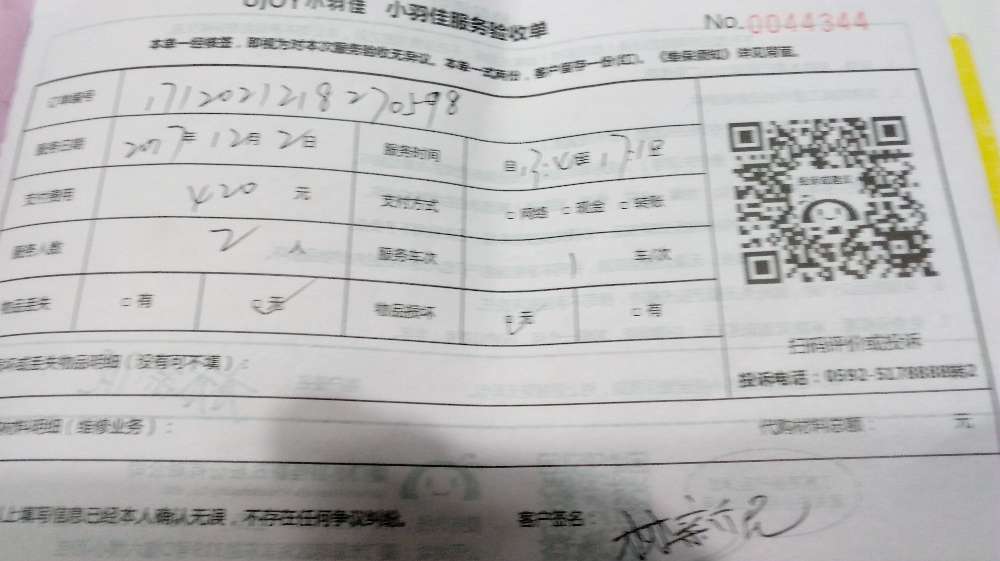 小羽佳 小羽佳服务验收单 No.0044344
本单一经核签，即视为对本次服务验收无异议。本单一式两份，客户留存一份(红)。《售保须知》详见背面。
订单编号 1712021218270598
服务日期 2017年 12月 2日 服务时间 自 至 17:18
支付费用 420 元 支付方式 □ 网络 □ 现金 □ 转账
服务人数 2 人 服务车次 1 车/次
物品丢失 □ 有 □ 无 物品损坏 □ 无 □ 有
坏或丢失物品明细（没有可不填）：
扫码评价或投诉
投诉电话：0592-5178888转2
材料明细（维修业务）： 代购材料总额： 元
上填写信息已经本人确认无误，不存在任何争议纠纷。 客户签名：